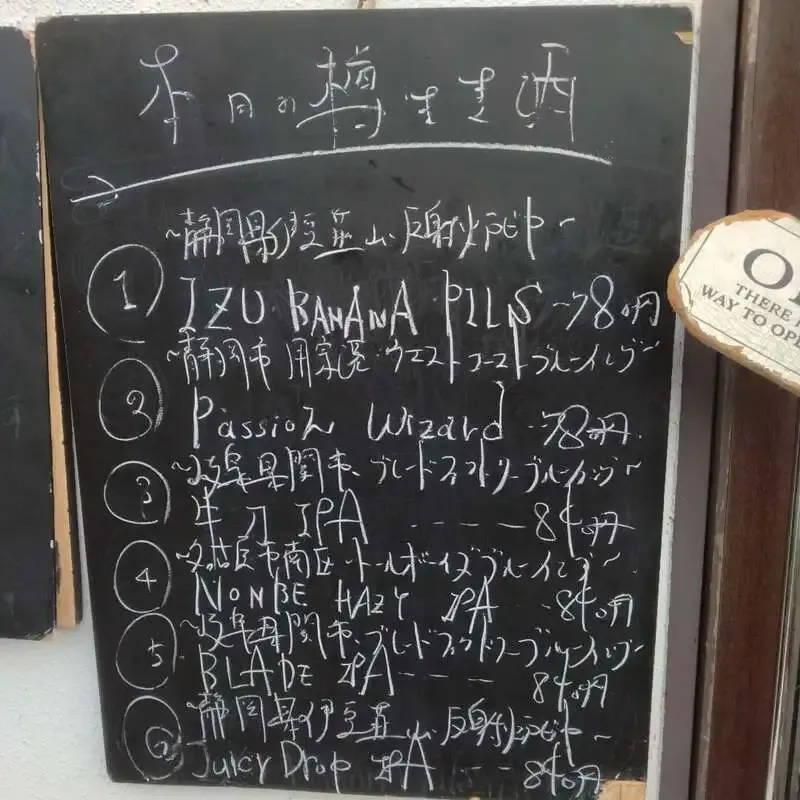 本日の樽生生酒
~静岡県伊豆韮山、反射炉ビヤ~
① IZU BANANA PILS ~780円
~静岡市 用宗港 ウエストコーストブルーイング~
② Passion Wizard ~780円
~岐阜県関市、ブレードファクトリーブルーイング~
③ 牛刀 IPA ---- 840円
~名古屋市南区 トールボーイズブルーイング~
④ NONBE HAZY IPA -840円
~岐阜県関市、ブレードファクトリーブルーイング
⑤ BLADE IPA --- 840円
~静岡県伊豆韮山 反射炉ビヤ~
⑥ Juicy Drop IPA -- 840円
THERE
WAY TO OPE